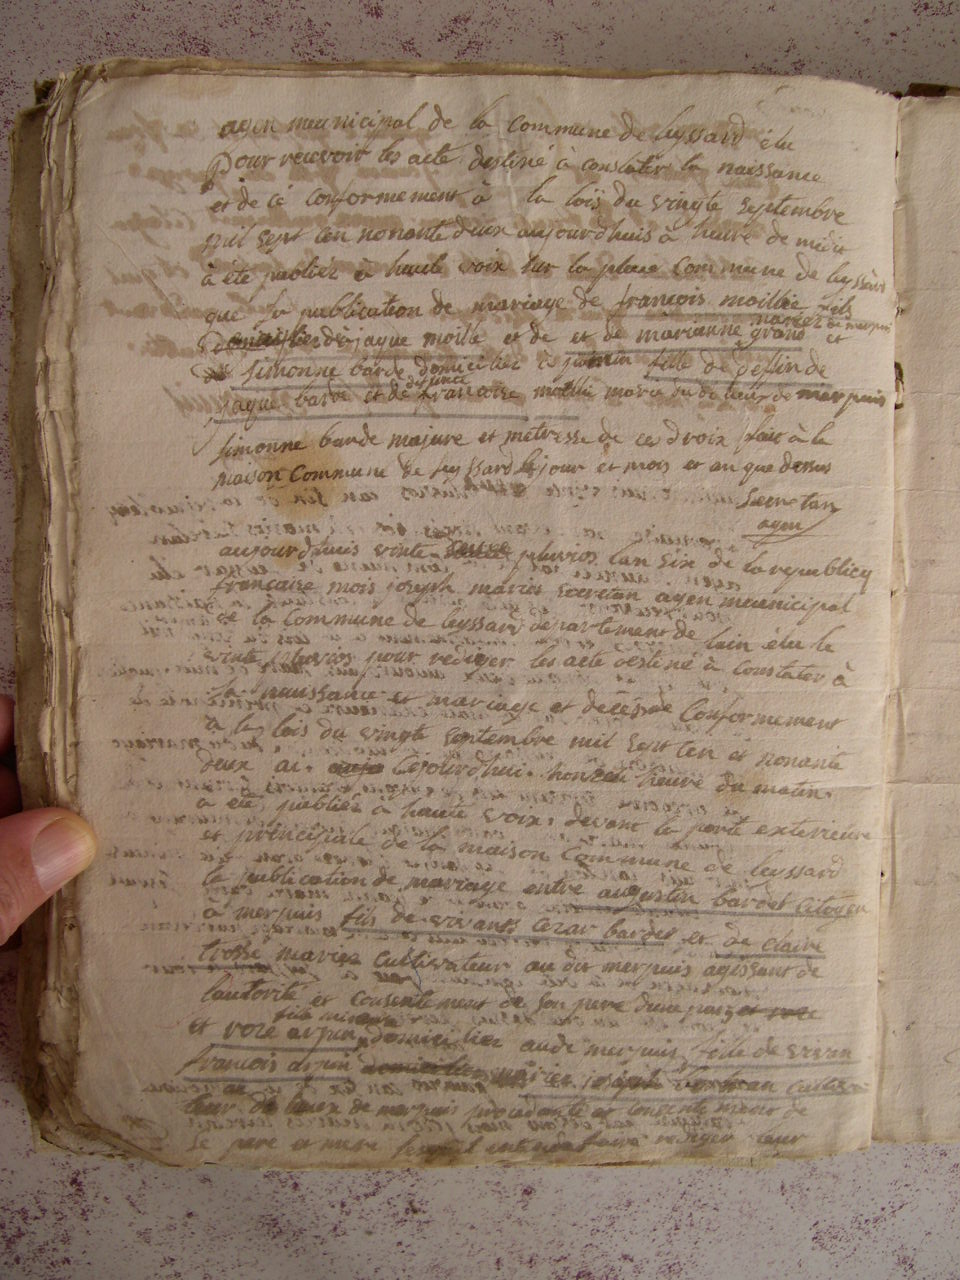 agen meunicipal de la Commune de leyssard élu
Pour recevoir les acte destiné à constater la naissance
et de cé conformement à la loïs du vingte Septembre
mil Sept Cen nonante deux aujourdhuis à heure de midis
à été publiez à haute voix sur la place Commune de leyssard
que la publication de mariage de françois moillie fils
mariez de merpuis
de jaque moille et de et de marianne grand et
simonne barde domicilier fille de deffin de
jaque barde et de françoise moillie marie du de lieux de merpuis
defunte
simonne barde majure et metresse de ces droix fait à la
maison Commune de leyssard le jour et mois et an que desus
Secretan
agen
aujourdhuis vinte pluvios lan six de la republicq
française mois joseph mariés secretan agen meunicipal
de la Commune de leyssard département de lain élu le
vinte pluvios pour rediger les acte destiné à Constater à
la naissance et mariage et décés de Conformement
à la loïs du vingte Septembre mil Sept Cen et nonante
deux à Cejourdhui heure du matin
à été publiez à haute voix devant la porte exterieure
et principale de la maison Commune de leyssard
la publication de mariage entre augustin bardet Citoyen
à merpuis fils de vivants Cezar bardet et de Claire
trosse mariez Cultivateur au dit merpuis agissant de
lautorité et Consentement de son pere dune part
fille mineure
et roze arpin domicilier audi merpuis fille de vivan
françois arpin mariez Cultiva
teur de lieux de merpuis procedante et Consentement de
Le pere et mere rediger leur